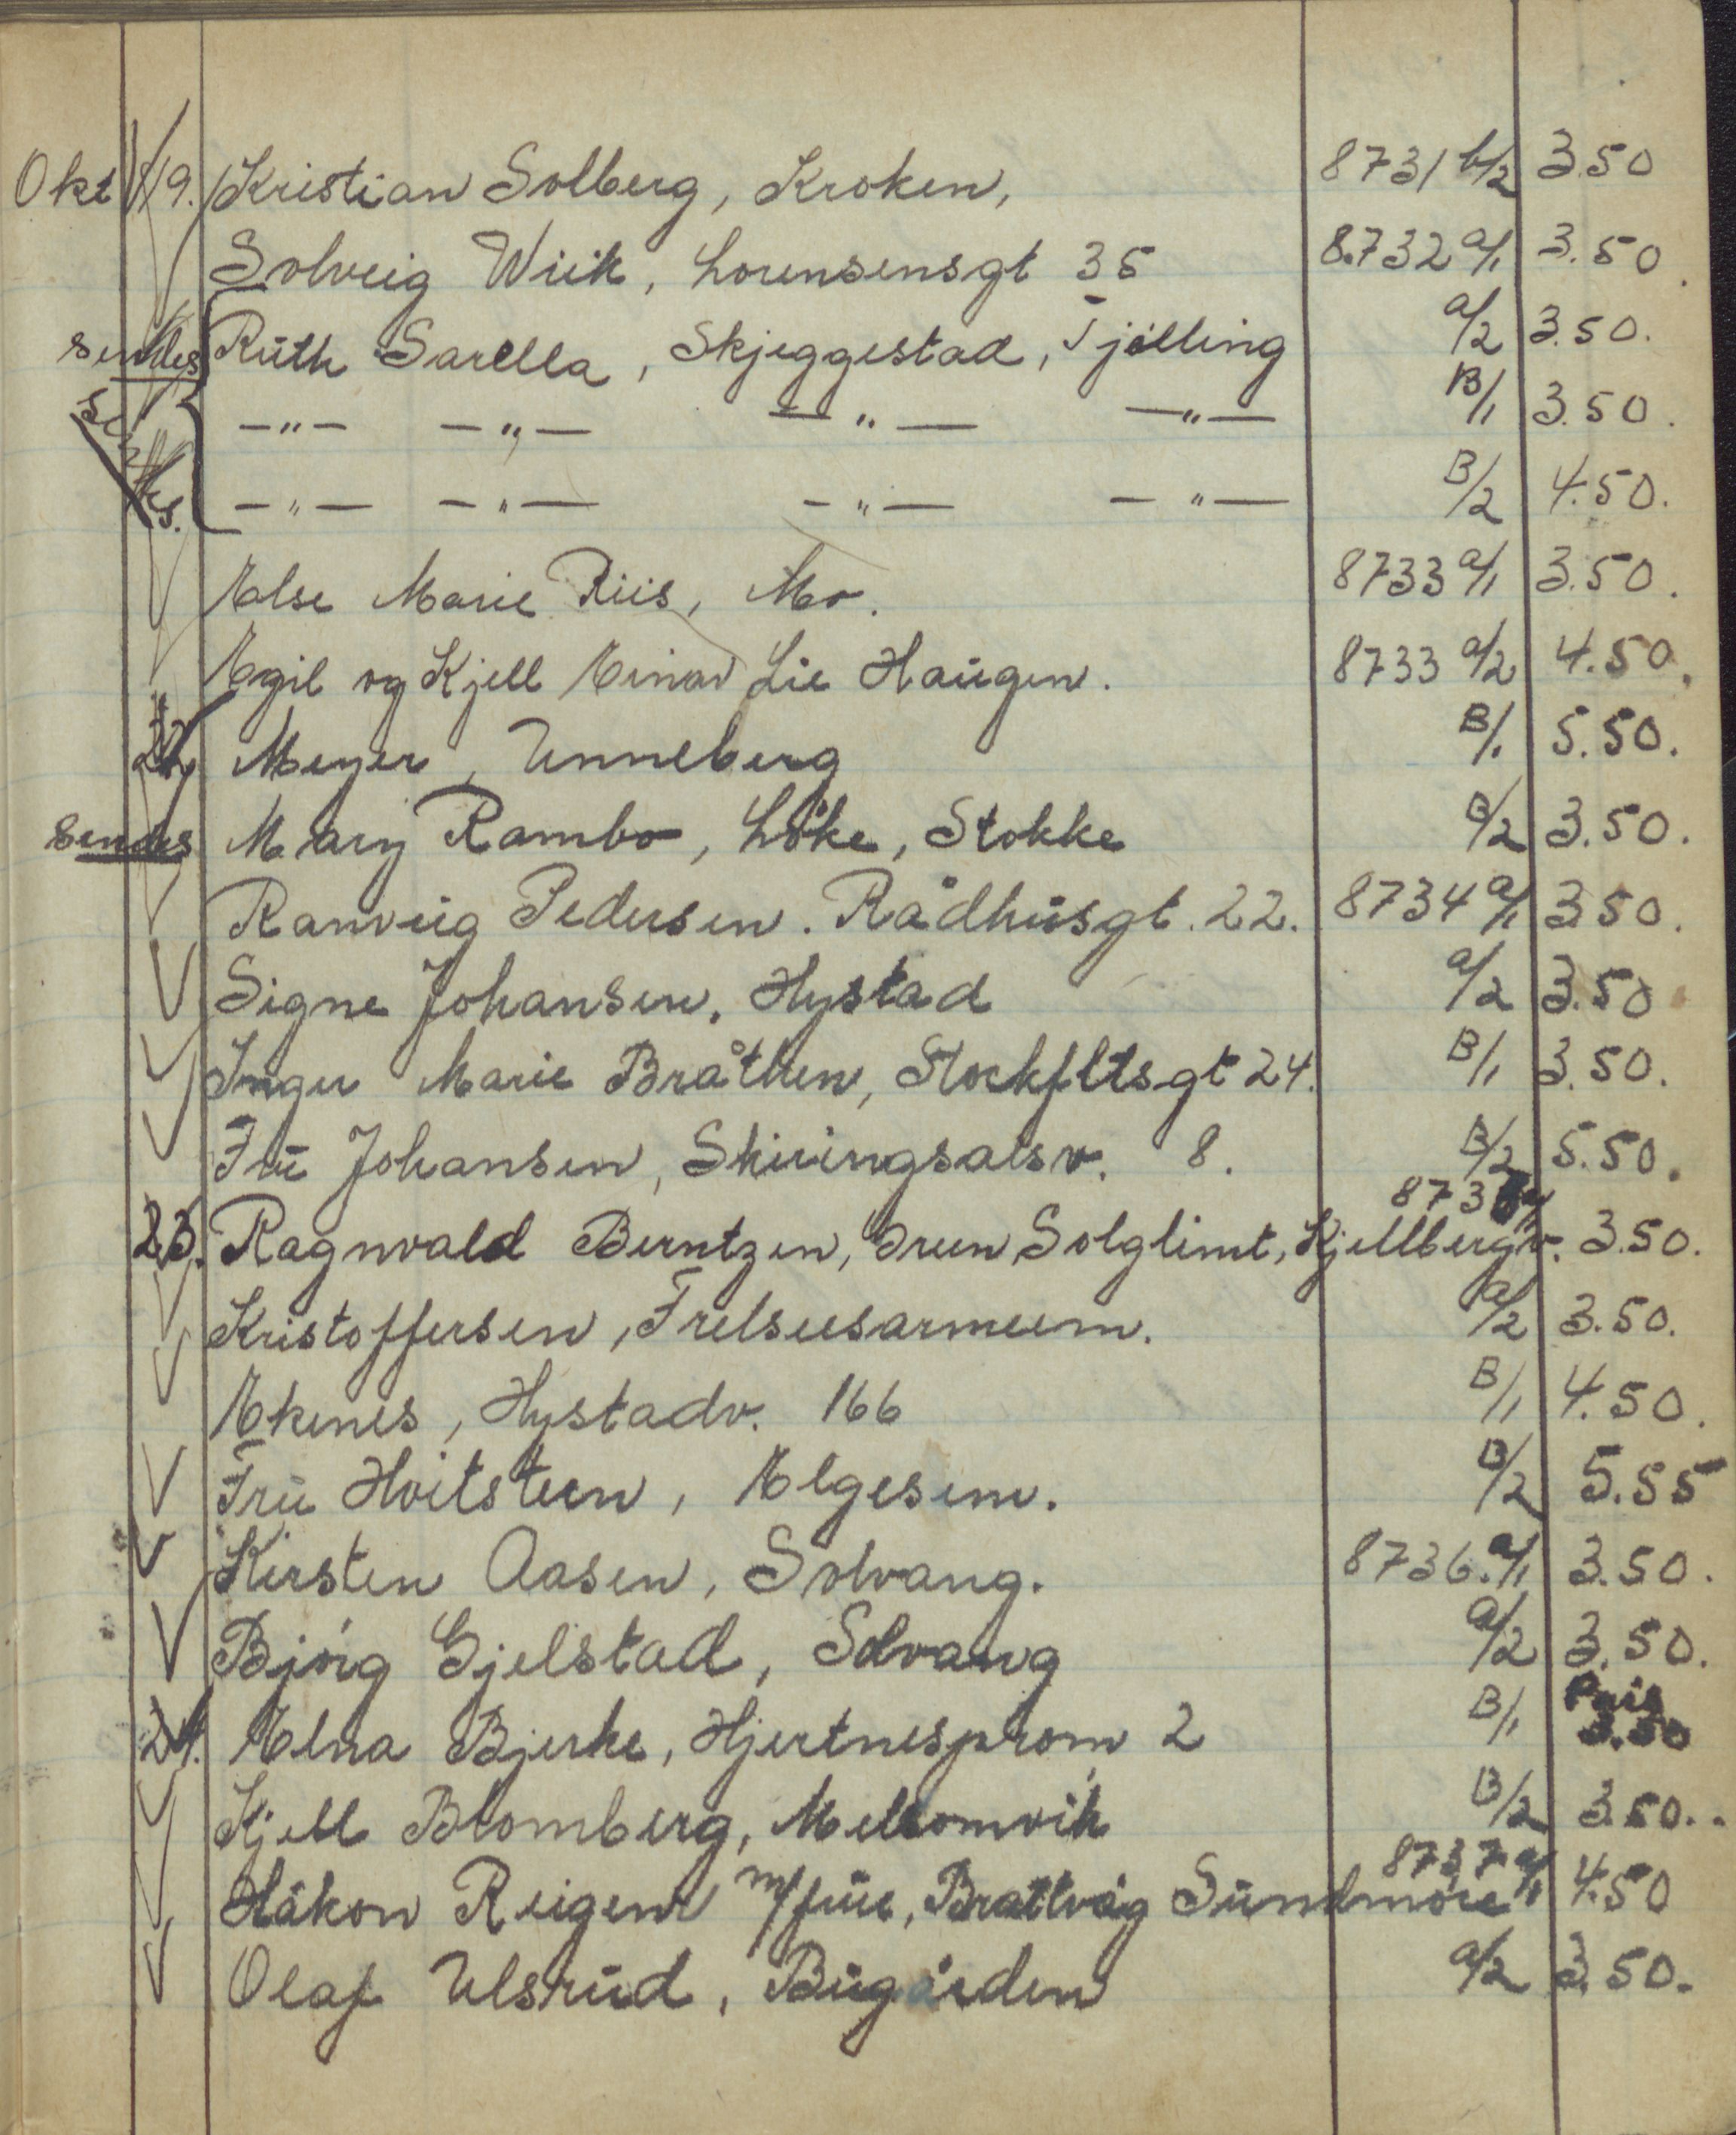 Okt 19. Kristian Solberg, Kroken, 8731 b/2 3.50
Solveig Wiik, Lorensensgt 35 8.732 a/1 3.50.
sendes Ruth Sarella, Skjeggestad, Tjølling a/2 3.50.
sendes. —"— —"— —"— —"— B/1 3.50.
—"— —"— —"— —"— B/2 4.50.
Else Marie Riis, Mo. 8733 a/1 3.50.
Egil og Kjell Einar Lie Haugen. 8733 a/2 4.50.
Meyer, Unneberg B/1 5.50.
sendes Mary Rambo, Løke, Stokke B/2 3.50.
Ranveig Pedersen. Rådhusgt. 22. 8734 a/1 3.50.
Signe Johansen. Hystad a/2 3.50
Inger Marie Bråthen, Stockfltsgt 24. B/1 3.50.
Fru Johansen, Skiringsalsv. 8. B/2 5.50.
23. Ragnvald Berntzen, Solglimt, Kjellbergv. 8735 a/1 3.50.
Kristoffersen, Frelseesarmeem. a/2 3.50.
Ekenes, Hystadv. 166 B/1 4.50.
Fru Hvitsteen, Elgesem. B/2 5.55
Kirsten Aasen, Solvang. 8736. a/1 3.50.
Bjørg Gjelstad, Solvang a/2 3.50.
24. Elna Bjerke, Hjertnesprom 2 B/1 3.50
Kjell Blomberg, Melsomvik B/2 3.50..
Håkon Reigem m/frue, Brattvåg Sundmøre 8737 a/1 4.50
Olaf Ulsrud, Bugården a/2 3.50.